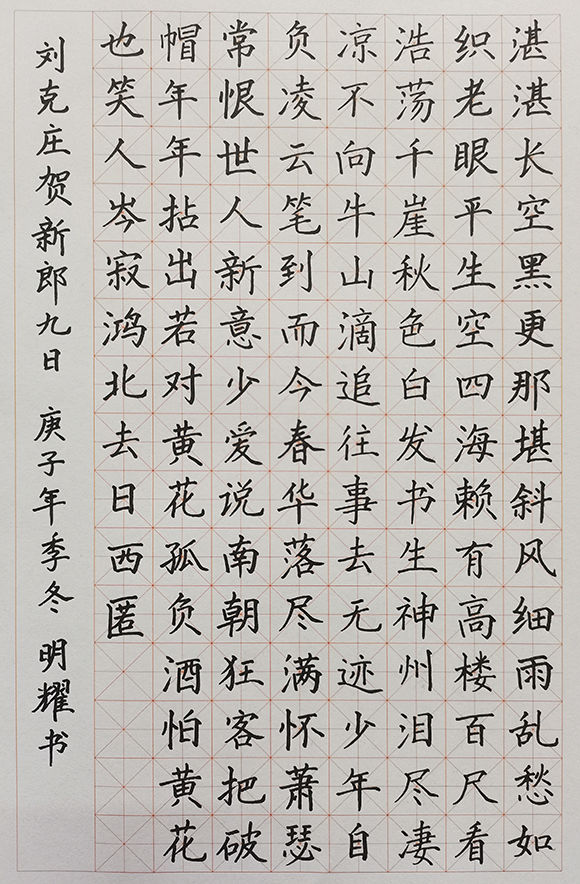 湛湛长空黑更那堪斜风细雨乱愁如
织老眼平生空四海赖有高楼百尺看
浩荡千崖秋色白发书生神州泪尽凄
凉不向牛山滴追往事去无迹少年自
负凌云笔到而今春华落尽满怀萧瑟
常恨世人新意少爱说南朝狂客把破
帽年年拈出若对黄花孤负酒怕黄花
也笑人岑寂鸿北去日西匿
刘克庄贺新郎九日 庚子年季冬 明耀书